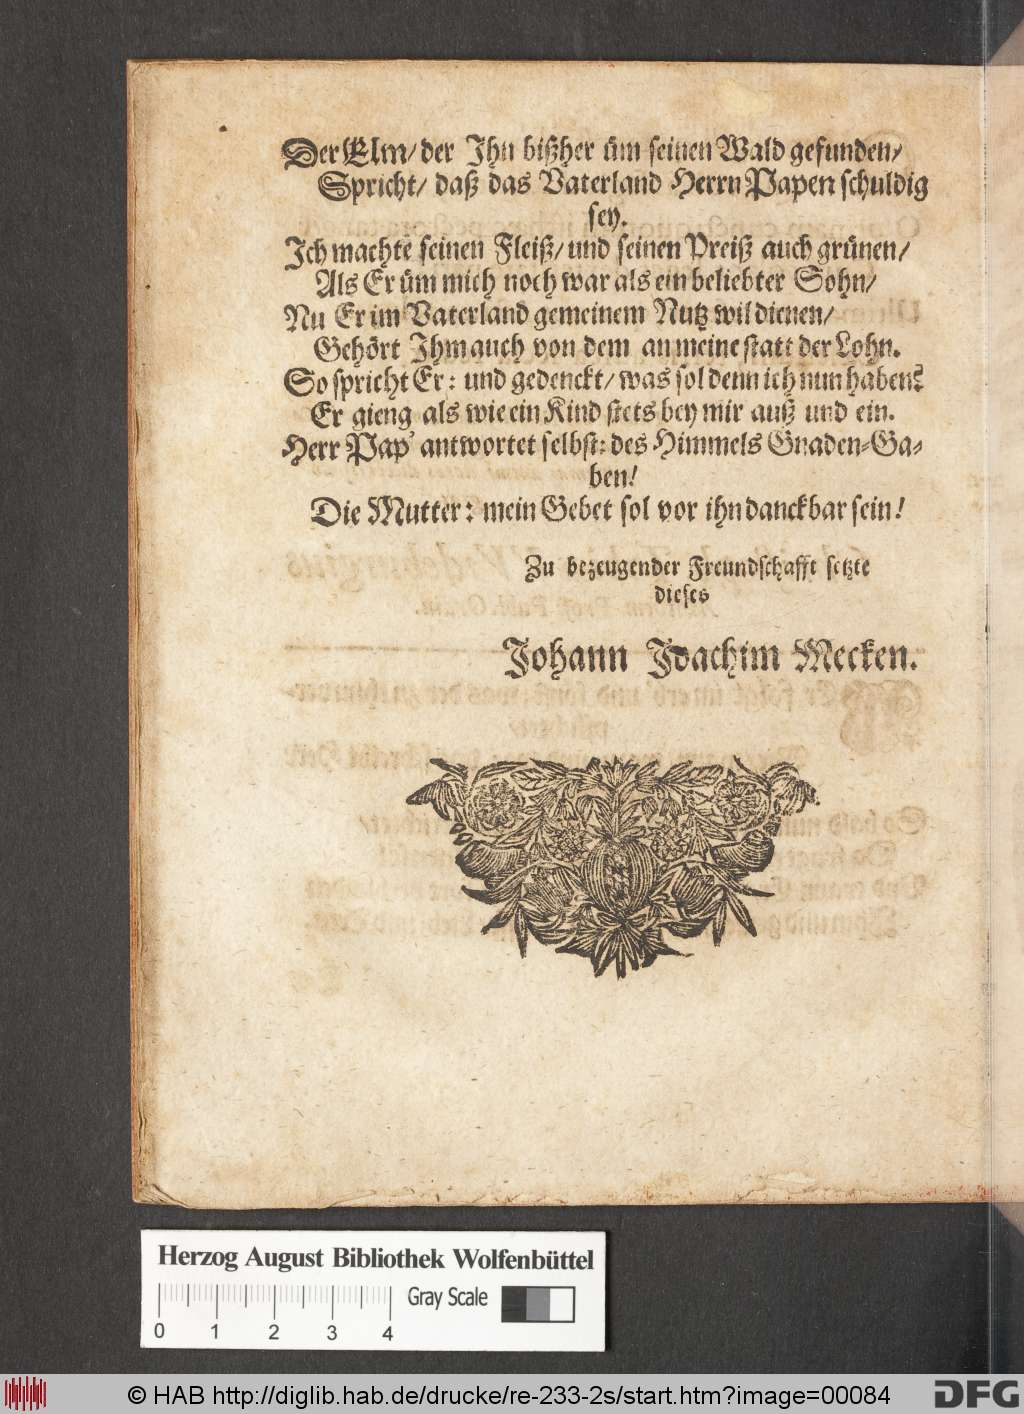 Der Elm/ der Ihn bißher üm seinen Wald gefunden/
Spricht/ daß das Vaterland Herrn Papen schuldig
sey.
Ich machte seinen Fleiß/ und seinen Preiß auch grünen/
Als Er üm mich noch war als ein beliebter Sohn/
Nu Er im Vaterland gemeinem Nutz wil dienen/
Gehört Ihm auch von dem an meine statt der Lohn.
So spricht Er: und gedenckt/ was sol denn ich nun haben?
Er gieng als wie ein Kind stets bey mir auß und ein.
Herr Pap' antwortet selbst: des Himmels Gnaden-Ga-
ben!
Die Mutter: mein Gebet sol vor ihn danckbar sein!
Zu bezeugender Freundschafft setzte
dieses
Johann Joachim Mecken.
Herzog August Bibliothek Wolfenbüttel
0 1 2 3 4 Gray Scale
© HAB http://diglib.hab.de/drucke/re-233-2s/start.htm?image=00084 DFG